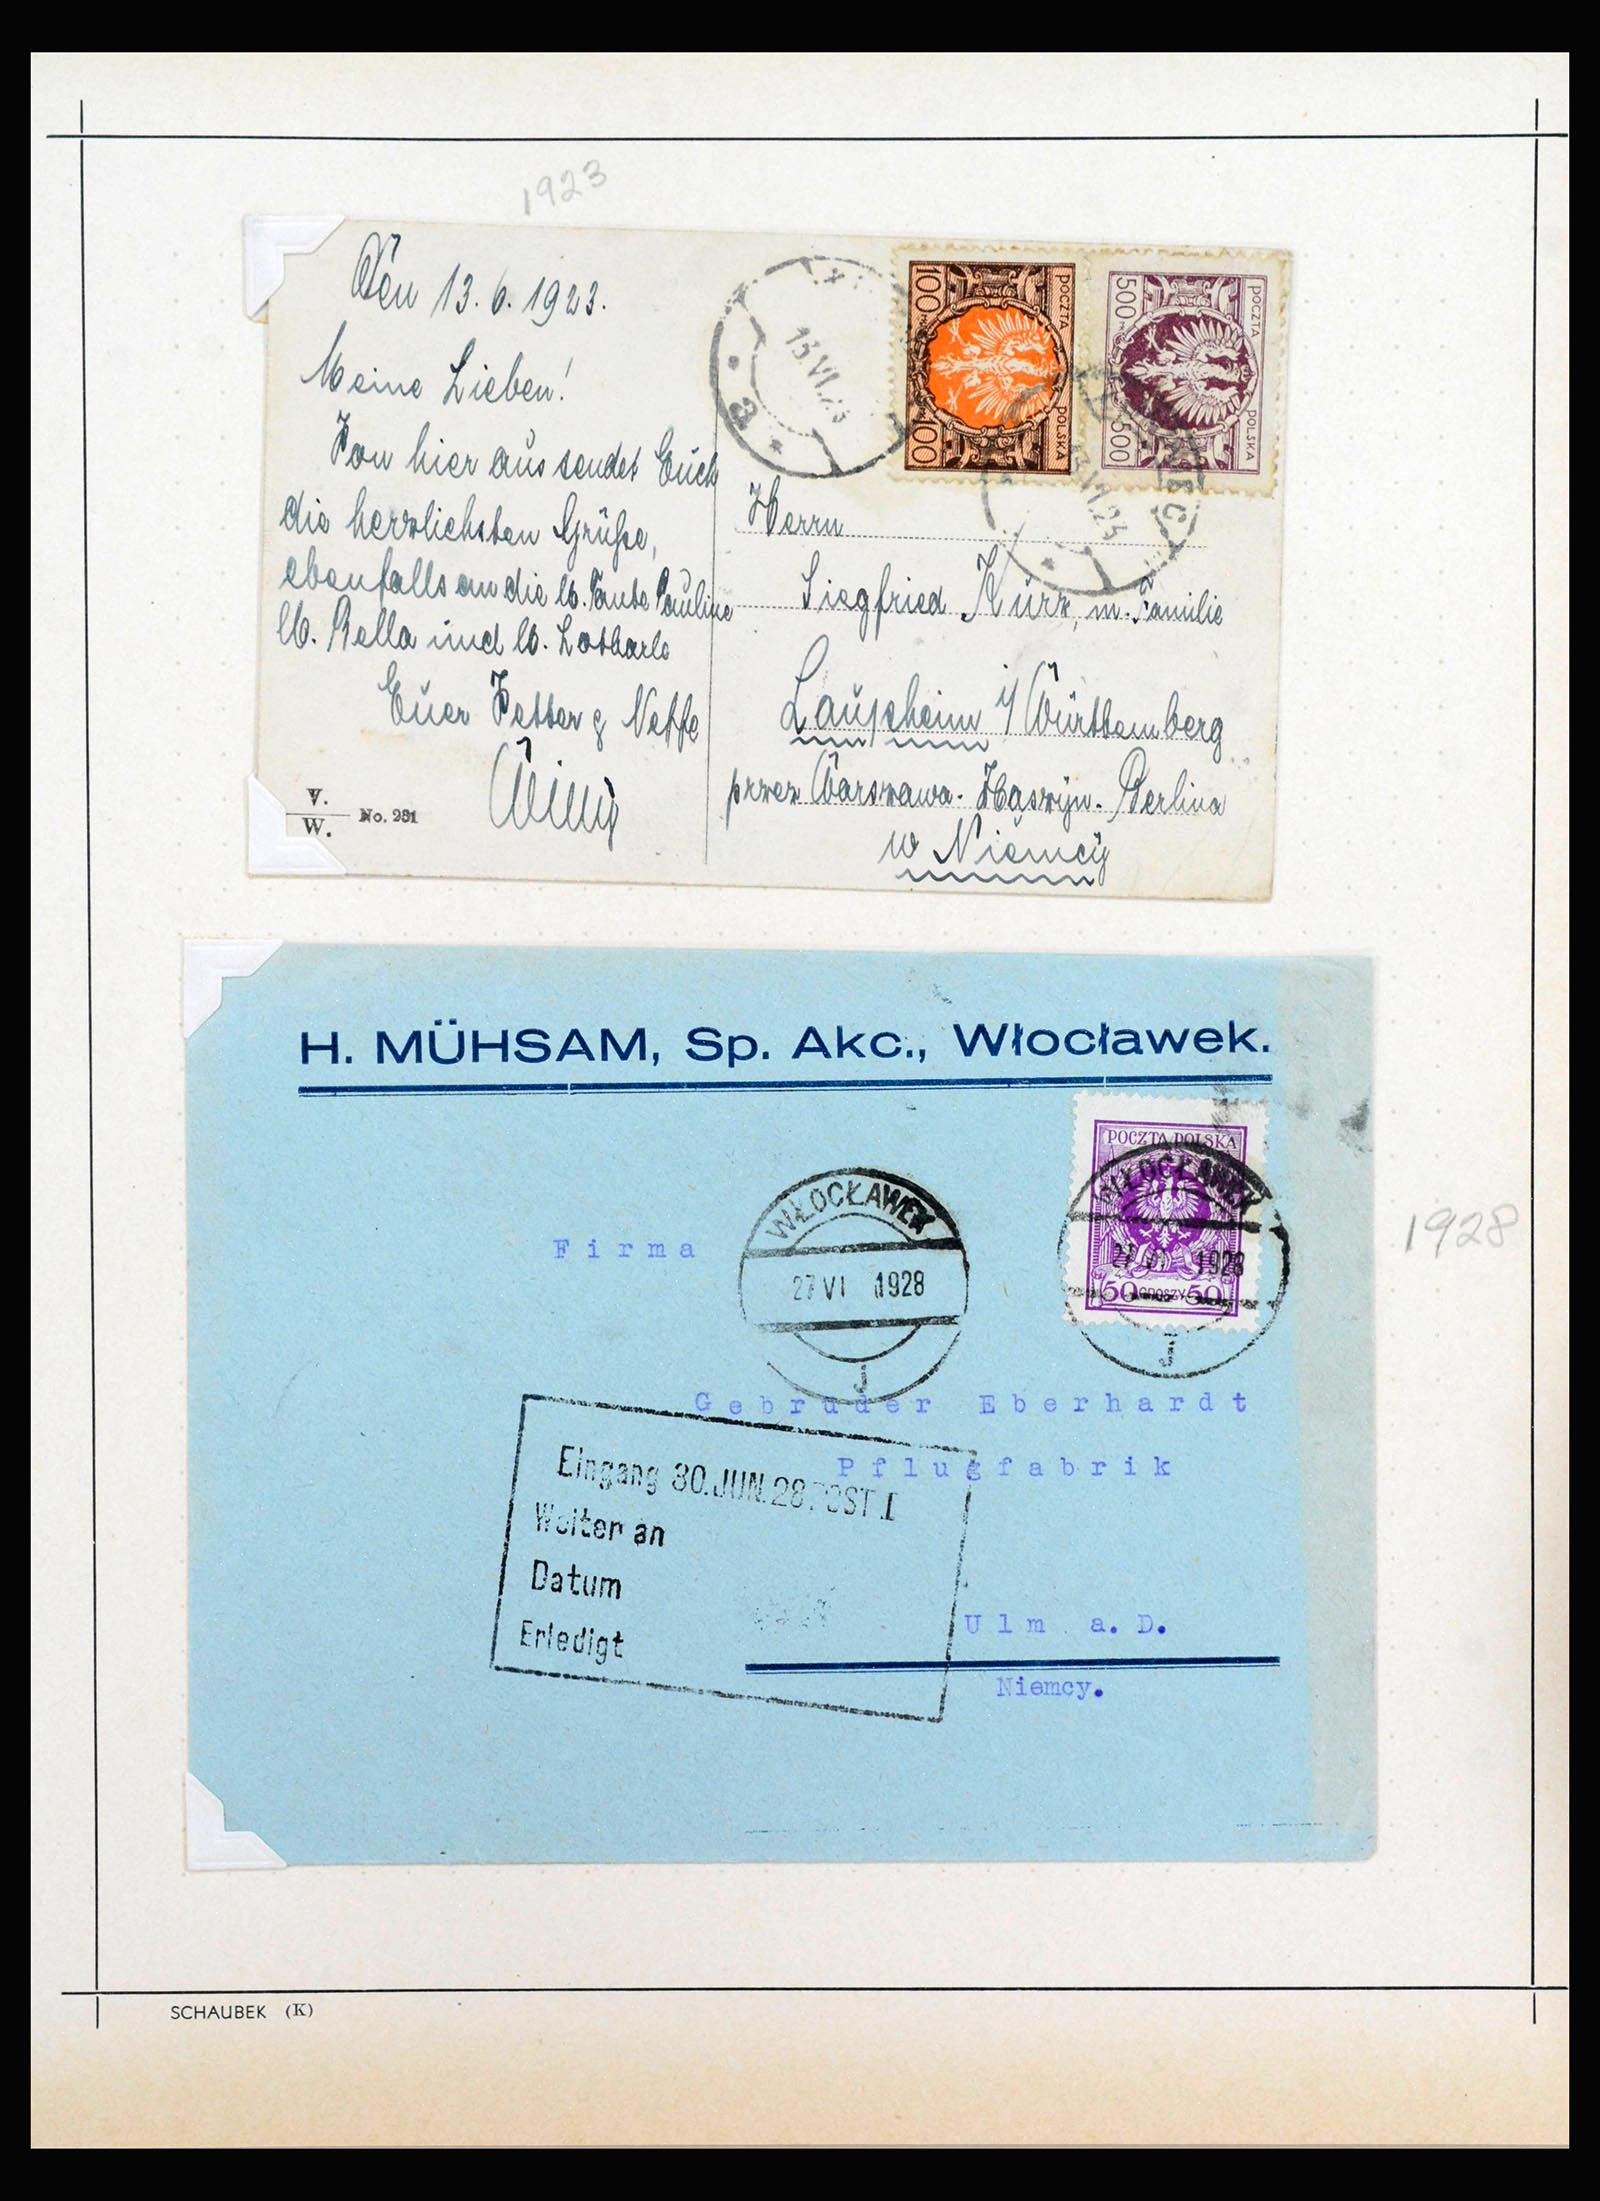 1923
Den 13.6.1923.
Meine Lieben!
Von hier aus sendet Euch
die herzlichsten Grüße,
ebenfalls an die lb. Tante Pauline
lb. Bella und lb. Lotharle
Euer Vetter & Neffe
Willy
V.
W.
No. 281
13.VI.23
3
100
100
POCZTA
POLSKA
500
500
POCZTA
POLSKA
Herrn
Siegfried Kurz, m. Familie
Laupheim i/Württemberg
przez Warszawa-Zbąszyn-Berlina
w Niemcy
H. MÜHSAM, Sp. Akc., Włocławek.
POCZTA POLSKA
50 GROSZY 50
WŁOCŁAWEK
27 VI 1928
J
WŁOCŁAWEK
27 VI 1928
J
1928
Firma
Gebruder Eberhardt
Pflugfabrik
Eingang 30.JUN.28.POST I
Weiter an
Datum
Erledigt
Ulm a.D.
Niemcy.
SCHAUBEK (K)